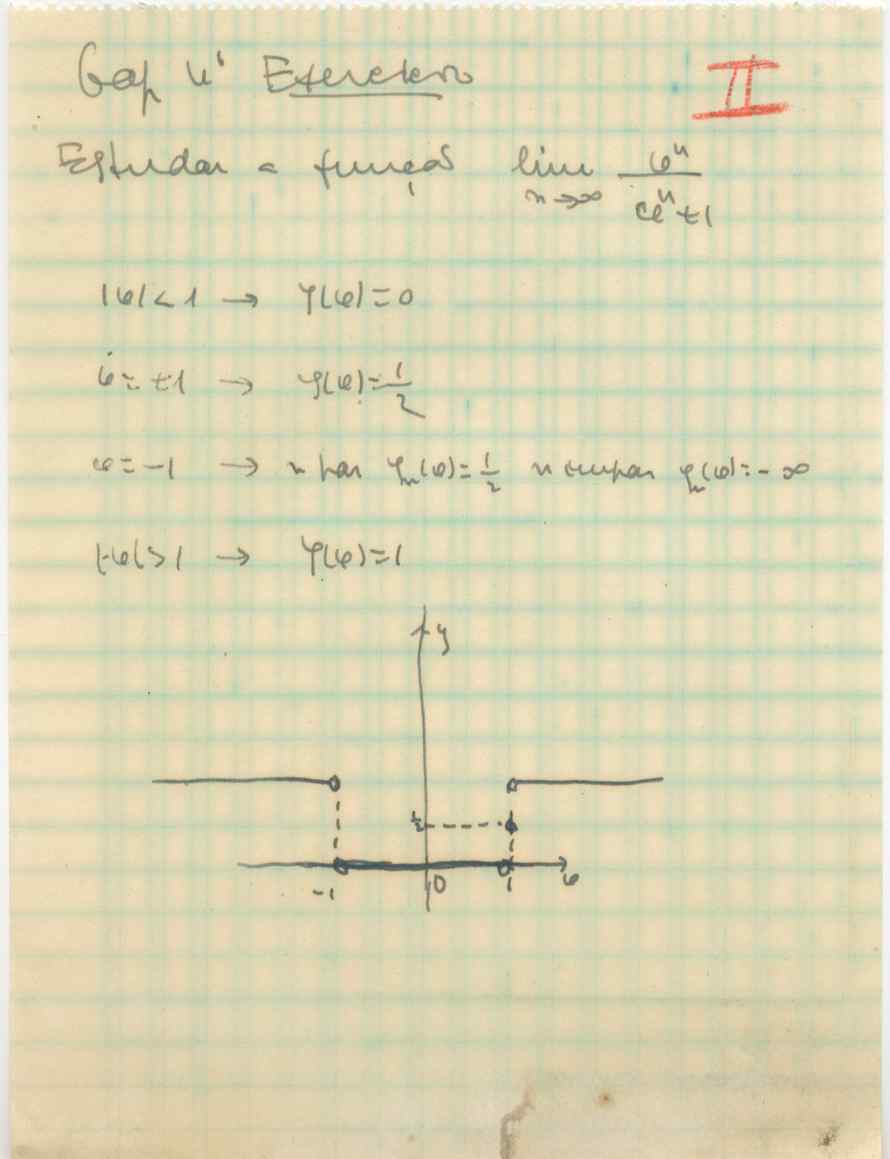 Cap 4º Exercício
II
Estudar a função lim n→∞ x^n / x^n+1
|x| < 1 → φ(x) = 0
x = +1 → φ(x) = 1/2
x = -1 → n par φn(x) = 1/2 n impar φn(x) = -∞
|x| > 1 → φ(x) = 1
y
1/2
-1 0 1 x